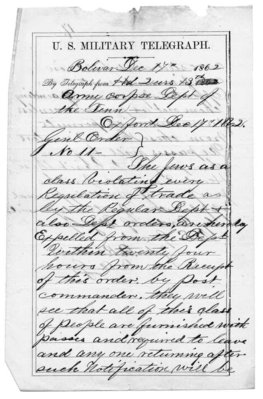 U. S. MILITARY TELEGRAPH.
Bolivar Dec 17th 1862
By Telegraph from Hd Qurs 13th
Army corpse Dept of
the Tenn
Oxford Dec 17th 1862.
Genl Order
No 11
The Jews as a
class violating every
Regulation of trade as
by the Dept
also Dept orders, are hereby
Expelled from the Dept
Within twenty four
hours from the Receipt
of this order by post
commander, they will
see that all of this class
of people are furnished with
passes and required to leave
and any one returning after
such Notification will be